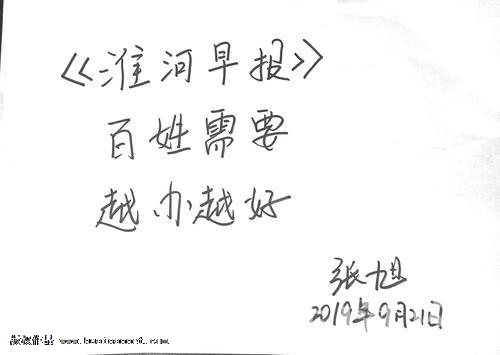 《淮河早报》
百姓需要
越办越好
张旭
2019年9月21日